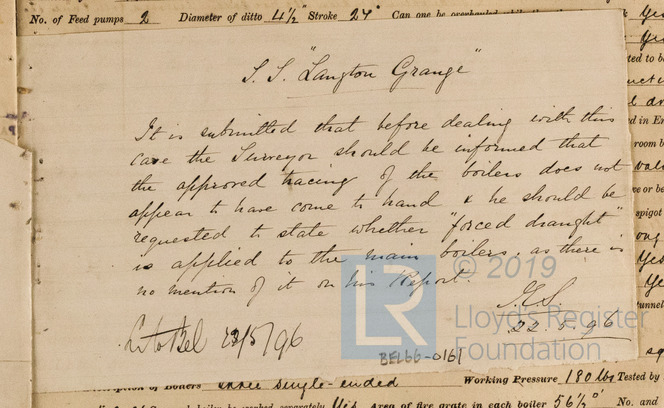 No. of Feed pumps 2 Diameter of ditto 4½" Stroke 24" Can one be overhauled while the
S. S. "Langton Grange"
It is submitted that before dealing with this
case the Surveyor should be informed that
the approved tracing of the boilers does not
appear to have come to hand & he should be
requested to state whether "forced draught"
is applied to the main boilers, as there is
no mention of it on his Report.
J.E.S.
22.5.96
L to Bel 23/5/96
BEL66-0161
© 2019
LR
Lloyd's Register
Foundation
Description of Boilers three single-ended Working Pressure 180 lbs Tested by
Area of fire grate in each boiler 56½ No. and